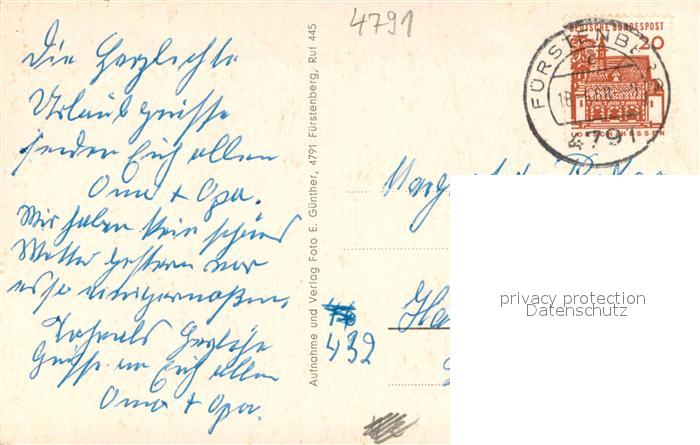 4791
Die herzlichste
Urlaubsgrüsse
senden Euch allen
Oma + Opa.
Wir haben kein schönes
Wetter gestern war
es so einigermaßen,
Nochmals herzliche
Grüsse an Euch allen
Oma + Opa.
Aufnahme und Verlag Foto E. Günther, 4791 Fürstenberg, Ruf 445
DEUTSCHE BUNDESPOST
20
LORSCH/HESSEN
FÜRSTENBERG
4791
432
privacy protection
Datenschutz